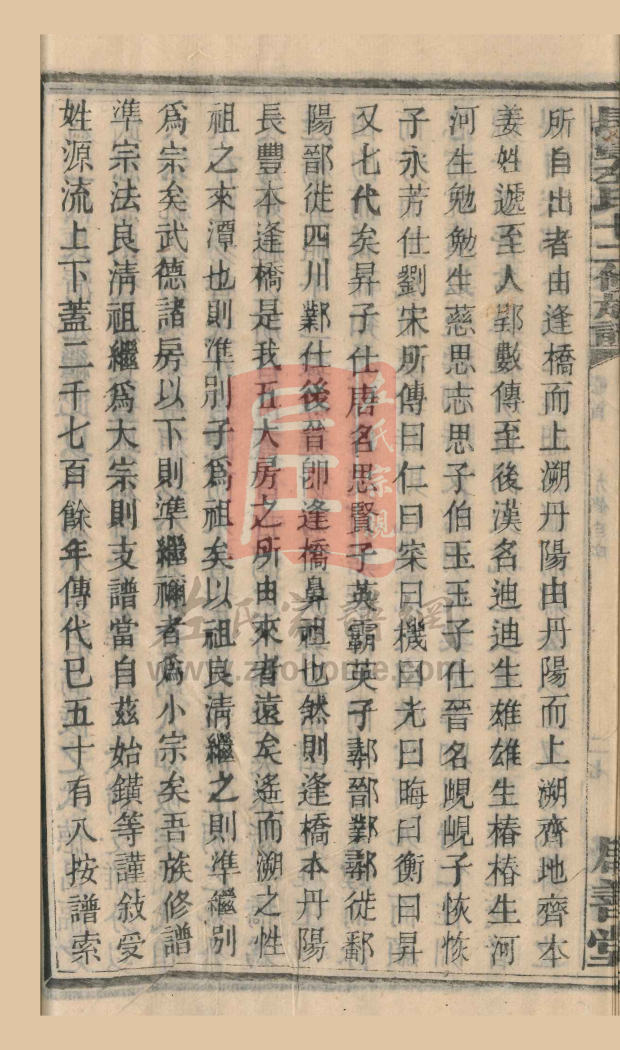 所自出者由逢橋而上溯丹陽由丹陽而上溯齊地齊本
姜姓遞至人郢數傳至後漢名迪迪生雄雄生椿椿生河
河生勉勉生慈思志思子伯玉玉子仕晉名峴峴子恢恢
子永芳仕劉宋所傳曰仁曰宷曰機曰尤曰晦曰衡曰昇
又七代矣昇子仕唐名思賢子英霸英子鄣鄑鄴鄣徙鄱
陽鄑徙四川鄴仕後晉卽逢橋鼻祖也然則逢橋本丹陽
長豐本逢橋是我五大房之所由來者遠矣遙而溯之性
祖之來潭也則準別子爲祖矣以祖良淸繼之則準繼別
爲宗矣武德諸房以下則準繼禰者爲小宗矣吾族修譜
準宗法良淸祖繼爲大宗則支譜當自茲始鐄等謹敍受
姓源流上下蓋二千七百餘年傳代已五十有八按譜索
左氏宗譜網
www.zuohome.com